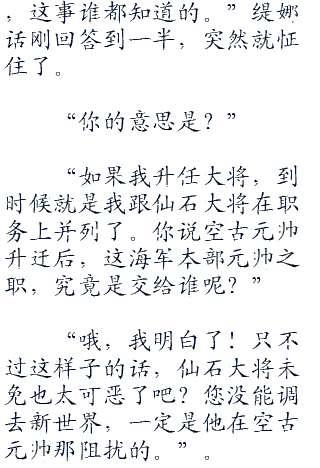 ，这事谁都知道的。”缇娜
话刚回答到一半，突然就怔
住了。
“你的意思是？”
“如果我升任大将，到
时候就是我跟仙石大将在职
务上并列了。你说空古元帅
升迁后，这海军本部元帅之
职，究竟是交给谁呢？”
“哦，我明白了！只不
过这样子的话，仙石大将未
免也太可恶了吧？您没能调
去新世界，一定是他在空古
元帅那阻扰的。”。